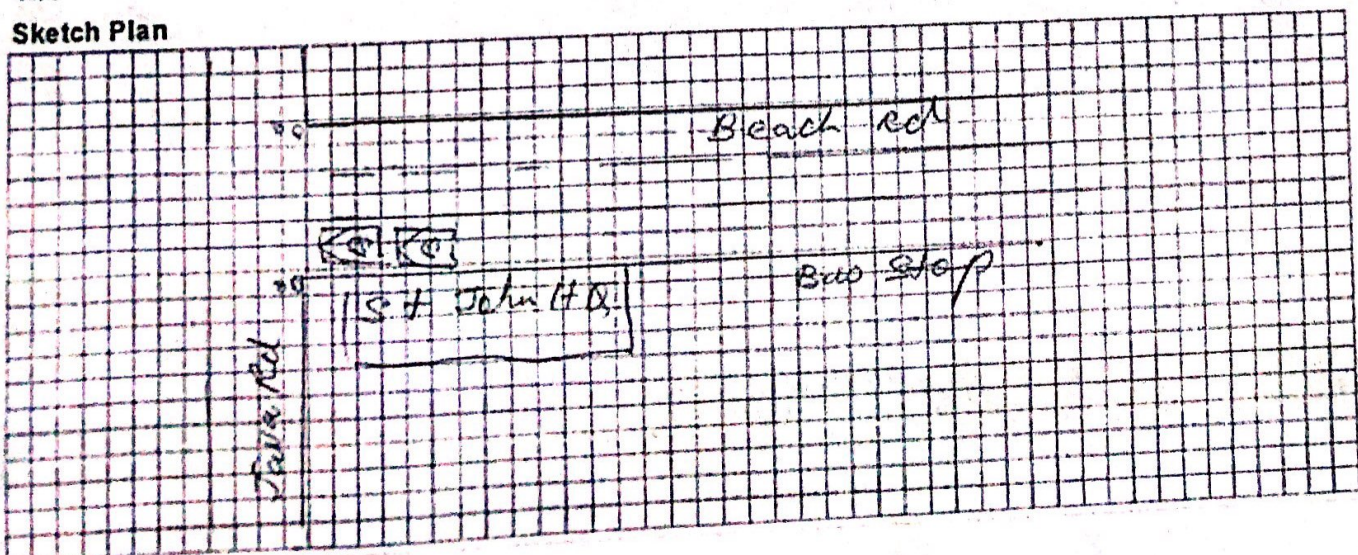 Sketch Plan
Beach Rd
Bus Stop
St John HQ
Java Rd